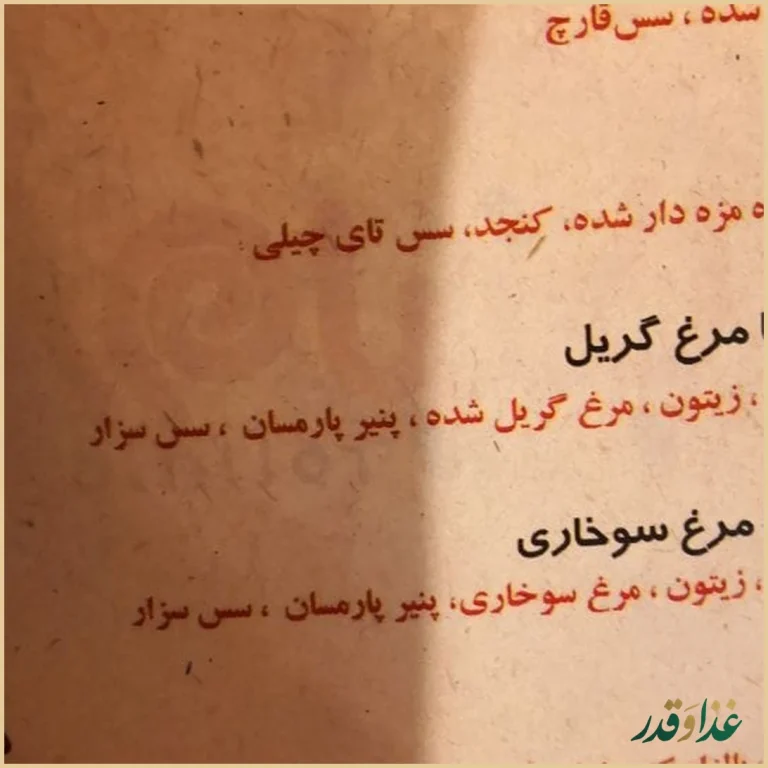 شده ، سس قارچ
مزه دار شده، کنجد، سس تای چیلی
مرغ گریل
، زیتون ، مرغ گریل شده ، پنیر پارمسان ، سس سزار
مرغ سوخاری
، زیتون ، مرغ سوخاری، پنیر پارمسان ، سس سزار
غذا و قدر